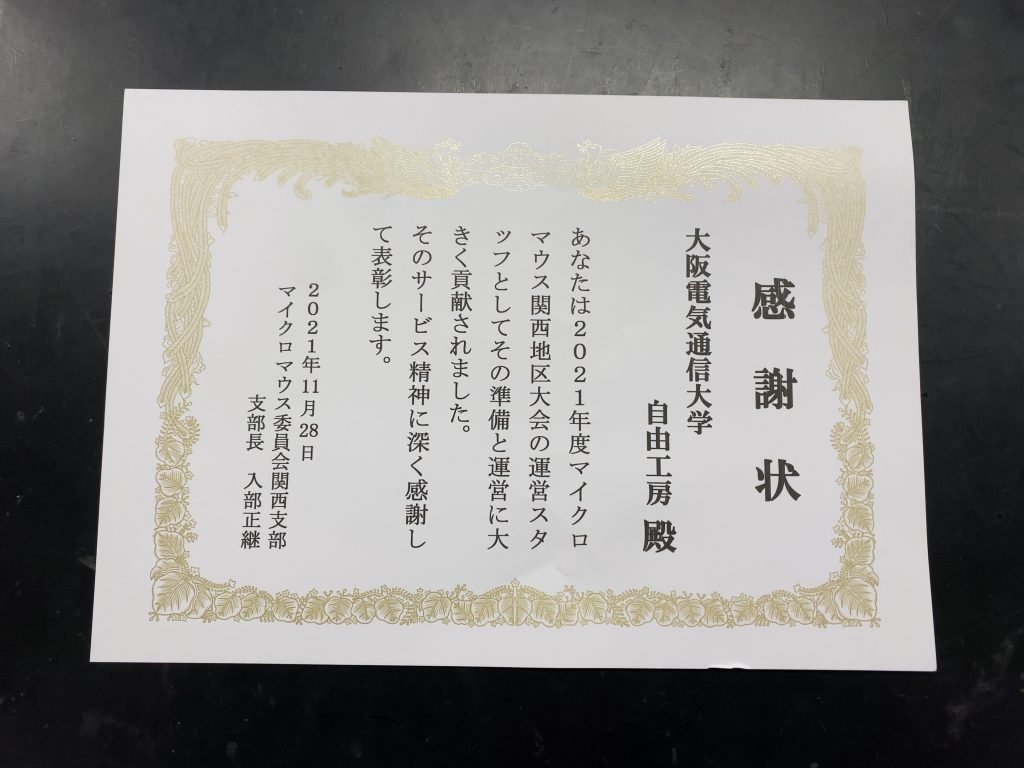 感謝状
大阪電気通信大学
自由工房 殿
あなたは２０２１年度マイクロ
マウス関西地区大会の運営スタ
ッフとしてその準備と運営に大
きく貢献されました。
そのサービス精神に深く感謝し
て表彰します。
２０２１年11月28日
マイクロマウス委員会関西支部
支部長　入部正継